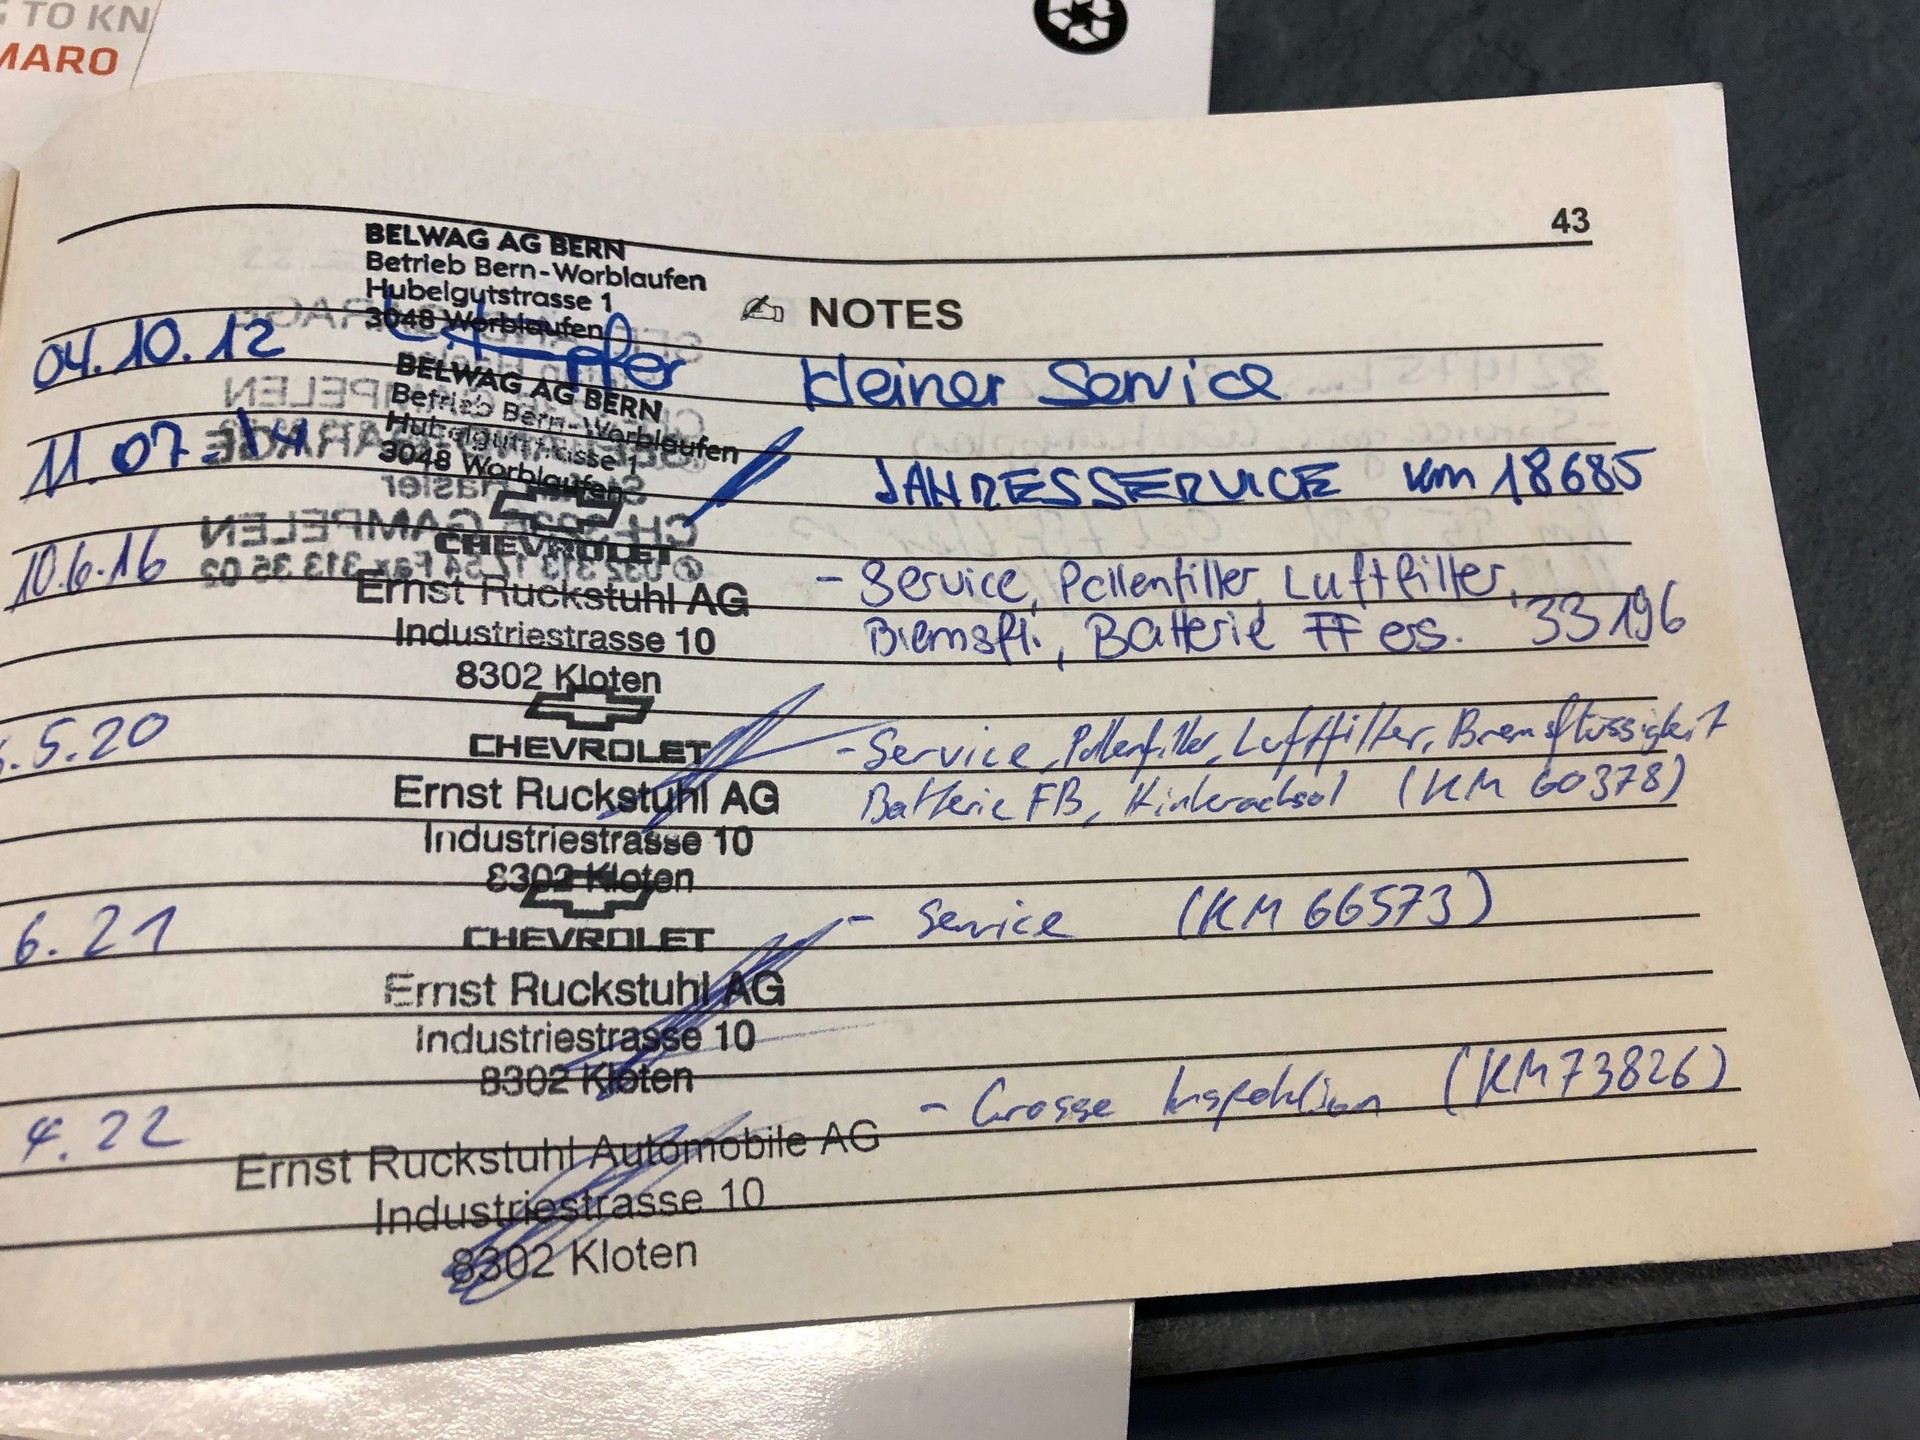 TO KN
MARO
43
BELWAG AG BERN
Betrieb Bern-Worblaufen
Hubelgutstrasse 1
3048 Worblaufen
NOTES
04.10.12
kleiner Service
BELWAG AG BERN
Betrieb Bern-Worblaufen
Hubelgutstrasse 1
3048 Worblaufen
11.07.14
JAHRESSERVICE km 18685
CHEVROLET
10.6.16
Ernst Ruckstuhl AG
Industriestrasse 10
8302 Kloten
- Service, Pollenfilter, Luftfilter,
Bremsfl., Batterie FF ers. 33196
.5.20
CHEVROLET
Ernst Ruckstuhl AG
Industriestrasse 10
8302 Kloten
- Service, Pollenfilter, Luftfilter, Bremsflüssigkeit
Batterie FB, Hinterachsöl (KM 60378)
6.21
CHEVROLET
Ernst Ruckstuhl AG
Industriestrasse 10
8302 Kloten
- Service (KM 66573)
4.22
Ernst Ruckstuhl Automobile AG
Industriestrasse 10
8302 Kloten
- Grosse Inspektion (KM 73826)